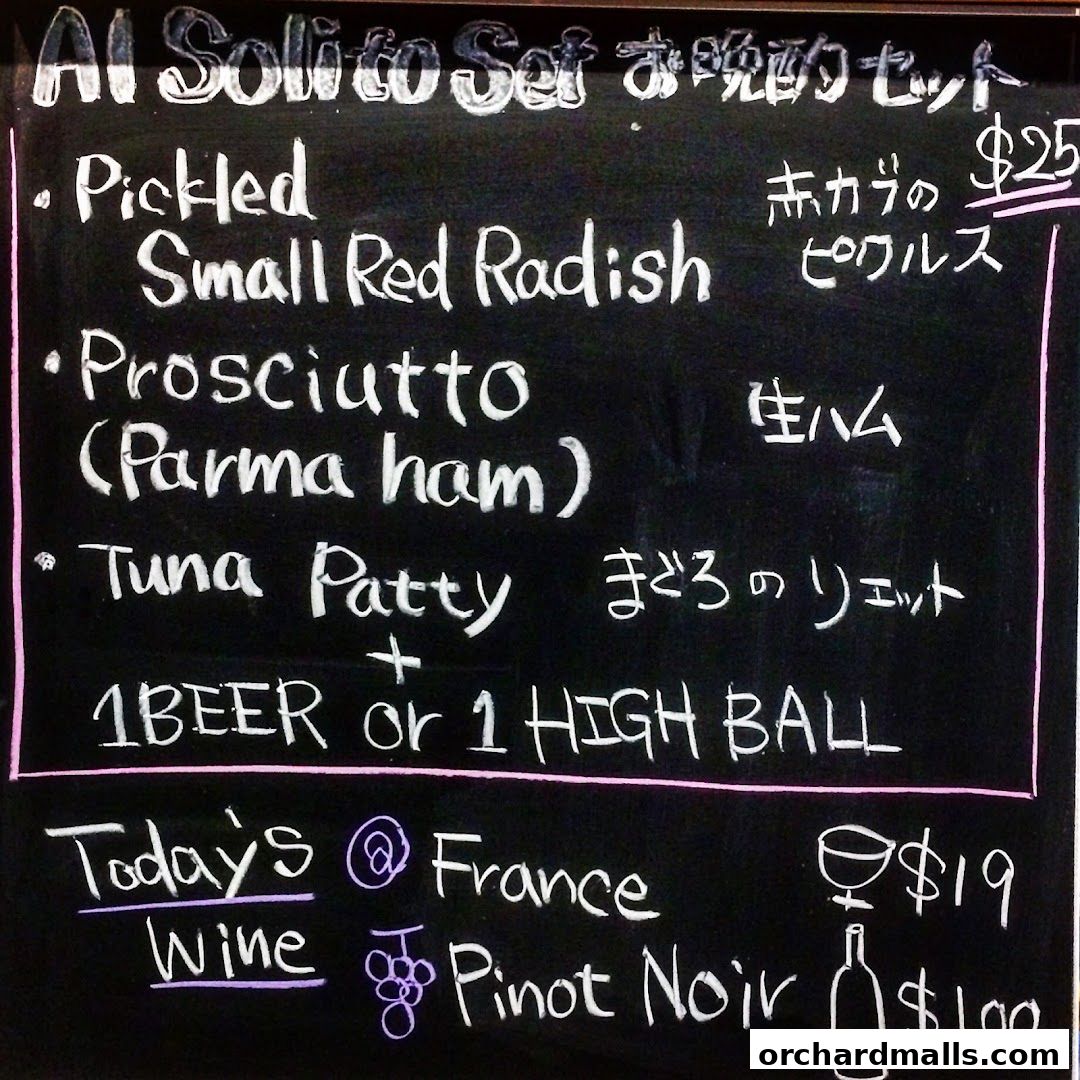 Al Solito Set お晩酌セット
$25
・Pickled
Small Red Radish
赤カブの
ピクルス
・Prosciutto
(Parma ham)
生ハム
・Tuna Patty
まどろのリエット
+
1 BEER or 1 HIGH BALL
Today's
Wine
@ France
Pinot Noir
$19
orchardmalls.com